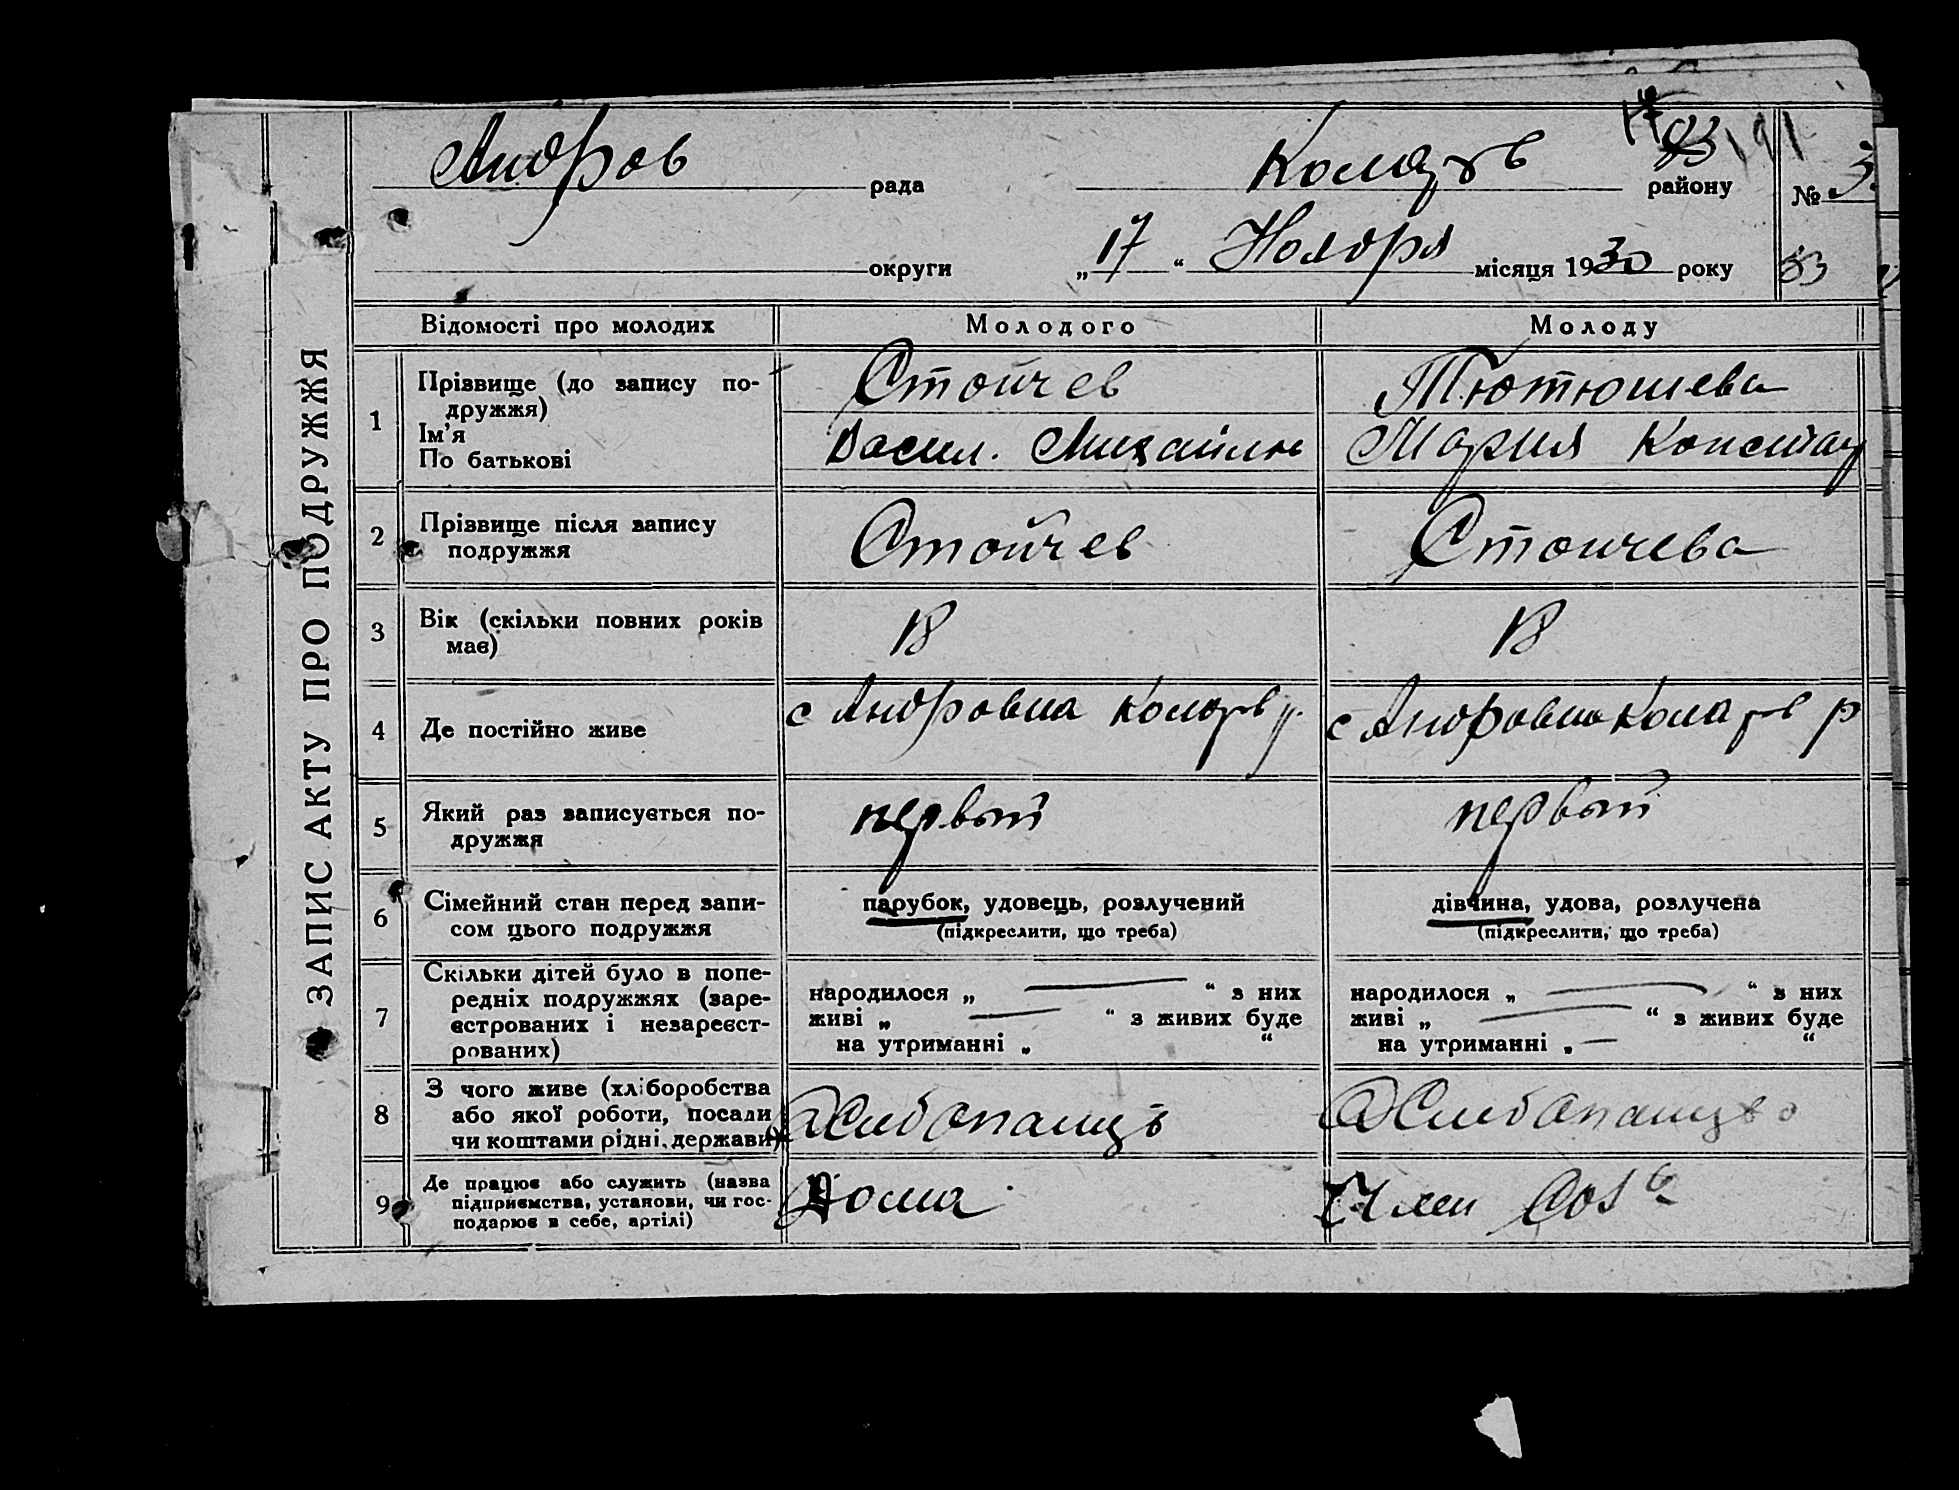 Андров рада Коларов району № 3
округи „17“ Ноября місяця 1930 року 53
ЗАПИС АКТУ ПРО ПОДРУЖЖЯ
Відомості про молодих Молодого Молоду
1 Прізвище (до запису по- Стойчев Тютюшева
дружжя)
Ім'я Васил. Михайлов Мария Констан
По батькові
2 Прізвище після запису Стойчев Стоичева
подружжя
3 Вік (скільки повних років 18 18
має)
4 Де постійно живе с Андровка Коларв р. с Андровка Коларов р
5 Який раз записується по- первый первый
дружжя
6 Сімейний стан перед запи- парубок, удовець, розлучений дівчина, удова, розлучена
сом цього подружжя (підкреслити, що треба) (підкреслити, що треба)
7 Скільки дітей було в попе-
редніх подружжях (заре- народилося „ — “ з них народилося „ — “ з них
єстрованих і незареєст- живі „ — “ з живих буде живі „ — “ з живих буде
рованих) на утриманні „ “ на утриманні „ — “
8 З чого живе (хліборобства
або якої роботи, посади
чи коштами рідні, держави)
9 Де працює або служить (назва Дома Член
підприємства, установи, чи гос-
подарює в себе, артілі)